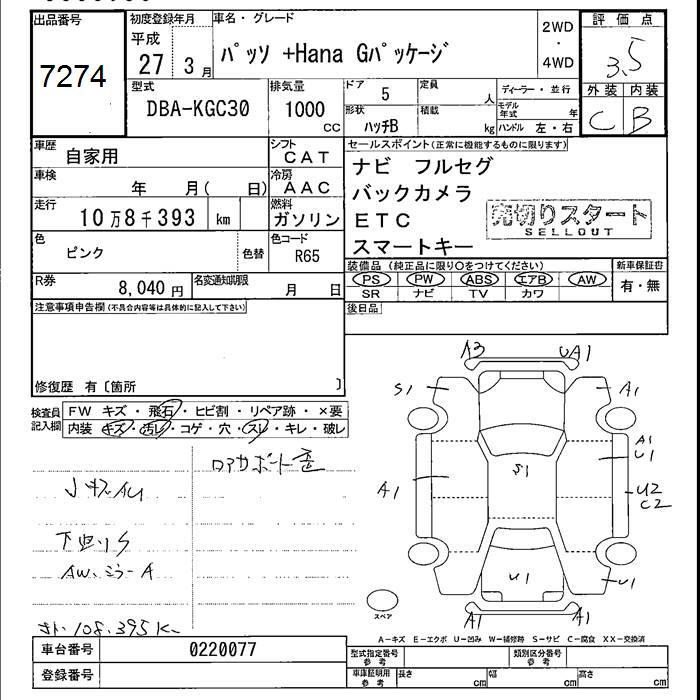 出品番号
7274
初度登録年月
平成
27 3月
車名・グレード
パッソ +Hana Gパッケージ
2WD
・
4WD
評価点
3.5
外装 内装
C B
型式
DBA-KGC30
排気量
1000
CC
ドア 5
定員 人
ディーラー・並行
形状
ハッチB
積載 kg
モデル年式 年
ハンドル 左・右
車歴
自家用
シフト
CAT
車検
年 月( 日)
冷房
AAC
走行
10万8千393 km
燃料
ガソリン
色
ピンク
色替
色コード
R65
R券
8,040円
名変通知期限
月 日
セールスポイント(正常に機能するものに限ります)
ナビ フルセグ
バックカメラ
ETC
スマートキー
売切りスタート
SELLOUT
装備品(純正品に限り〇をつけてください)
PS PW ABS エアB AW
SR ナビ TV カワ
新車保証書
有・無
注意事項申告欄(不具合内容等は具体的に記入して下さい)
後日品
修復歴 有〔箇所 〕
検査員
記入欄
FW キズ・飛石・ヒビ割・リペア跡・×要
内装 キズ・汚レ・コゲ・穴・スレ・キレ・破レ
A3 UA1
S1 A1
A1
U1
S1
A1
U2
C2
U1
U1
A1 A1
スペア
AW、ミラーA
108,395K
A-キズ E-エクボ U-凹み W-補修跡 S-サビ C-腐食 XX-交換済
車台番号 0220077
登録番号
型式指定番号
参考
類別区分番号
参考
車庫証明用
参考
長さ cm
幅 cm
高さ cm